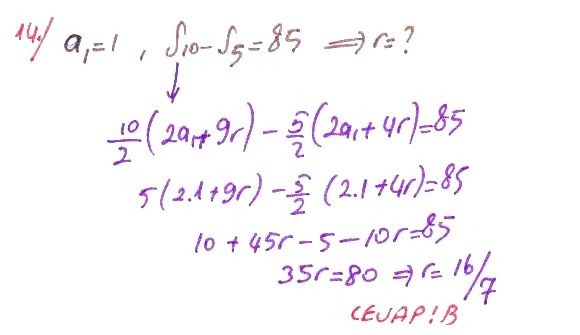 14./ a₁=1 , S₁₀-S₅=85 ⟹ r=?
10/2 (2a₁+9r) - 5/2 (2a₁+4r)=85
5(2.1+9r) - 5/2 (2.1+4r)=85
10 + 45r - 5 - 10r=85
35r=80 ⇒ r= 16/7
CEVAP:B